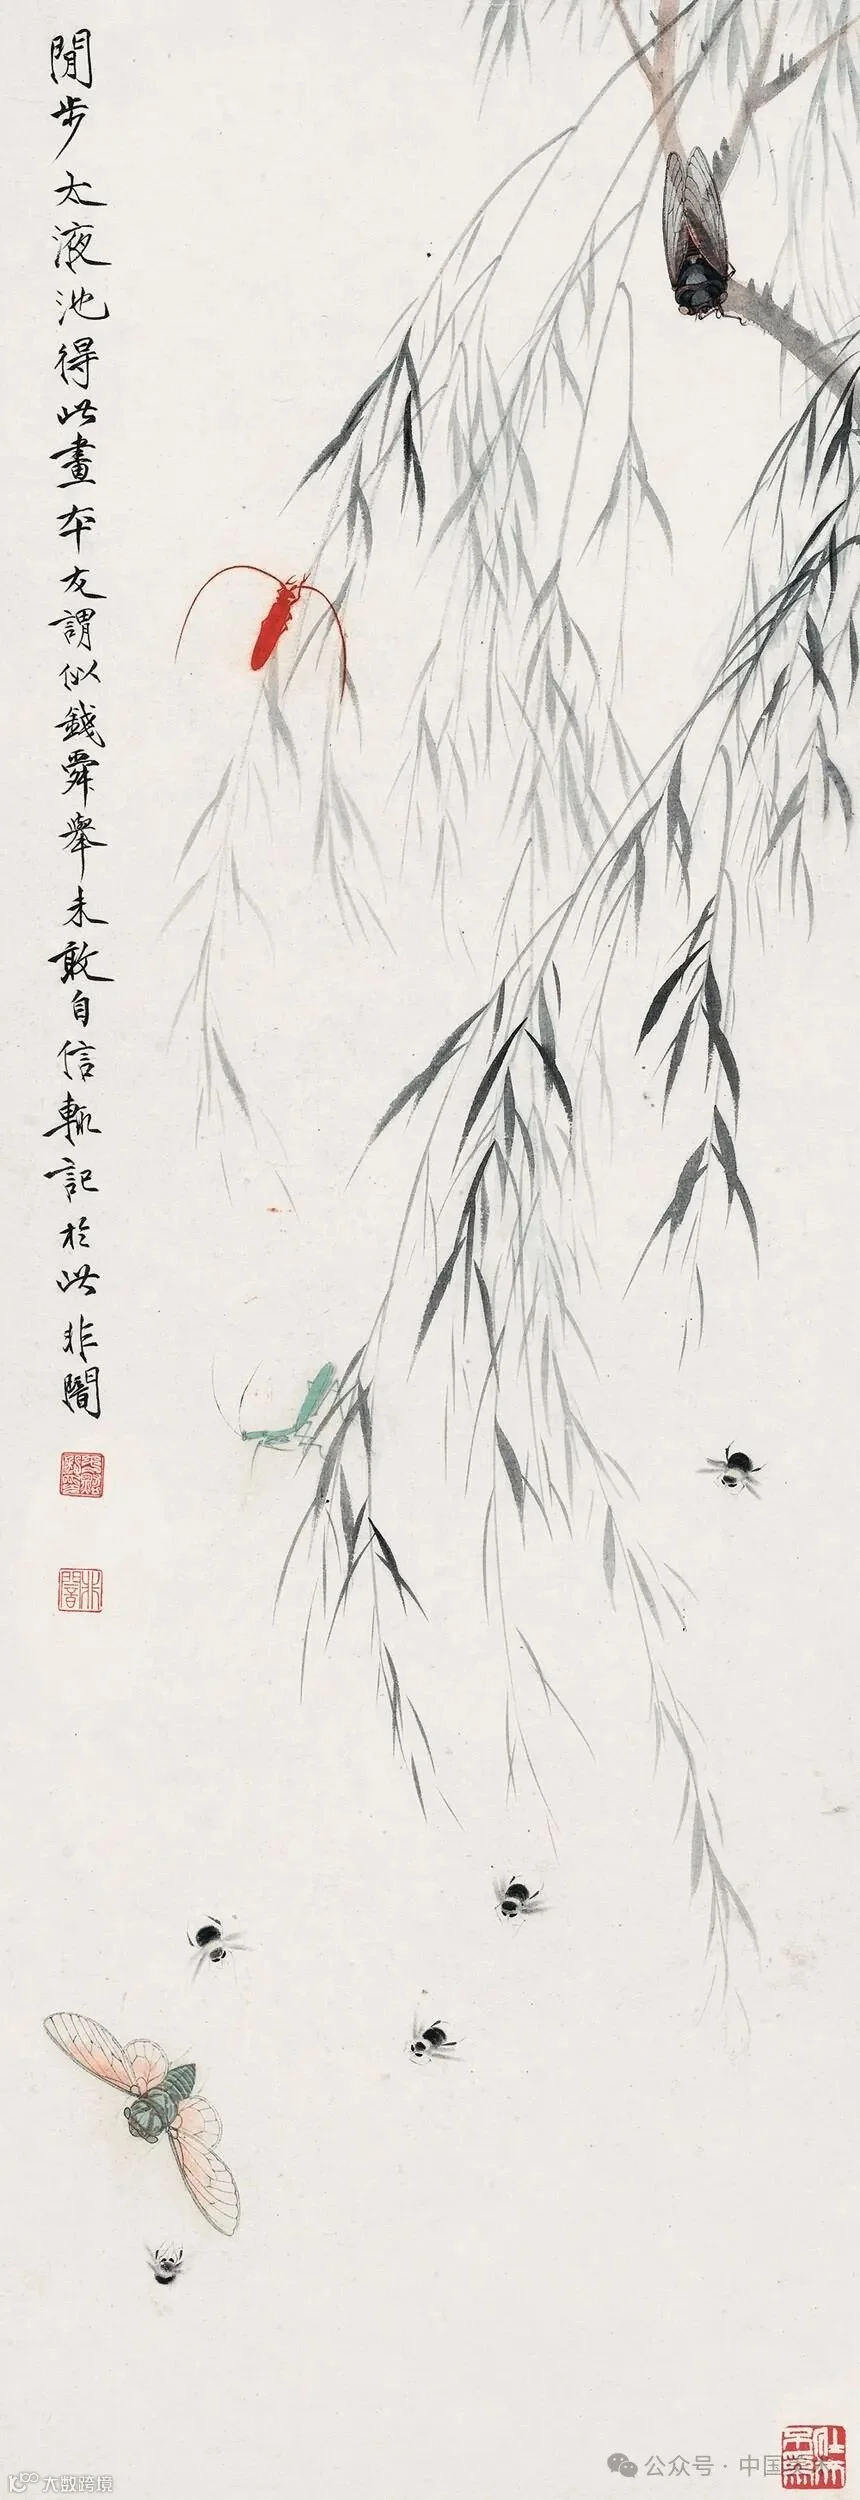 閒步太液池得此畫本友謂似錢舜舉未敢自信輒記於此非闇
公众号 · 中国美术
大数跨境